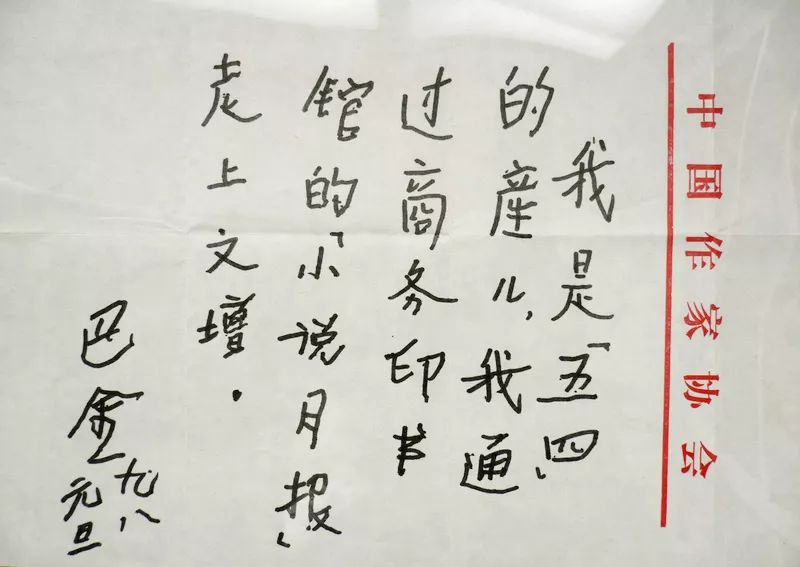 中国作家协会
我是「五四」
的産儿，我通
过商务印书
馆的「小说月报」
走上文壇．
巴金
九八
元旦